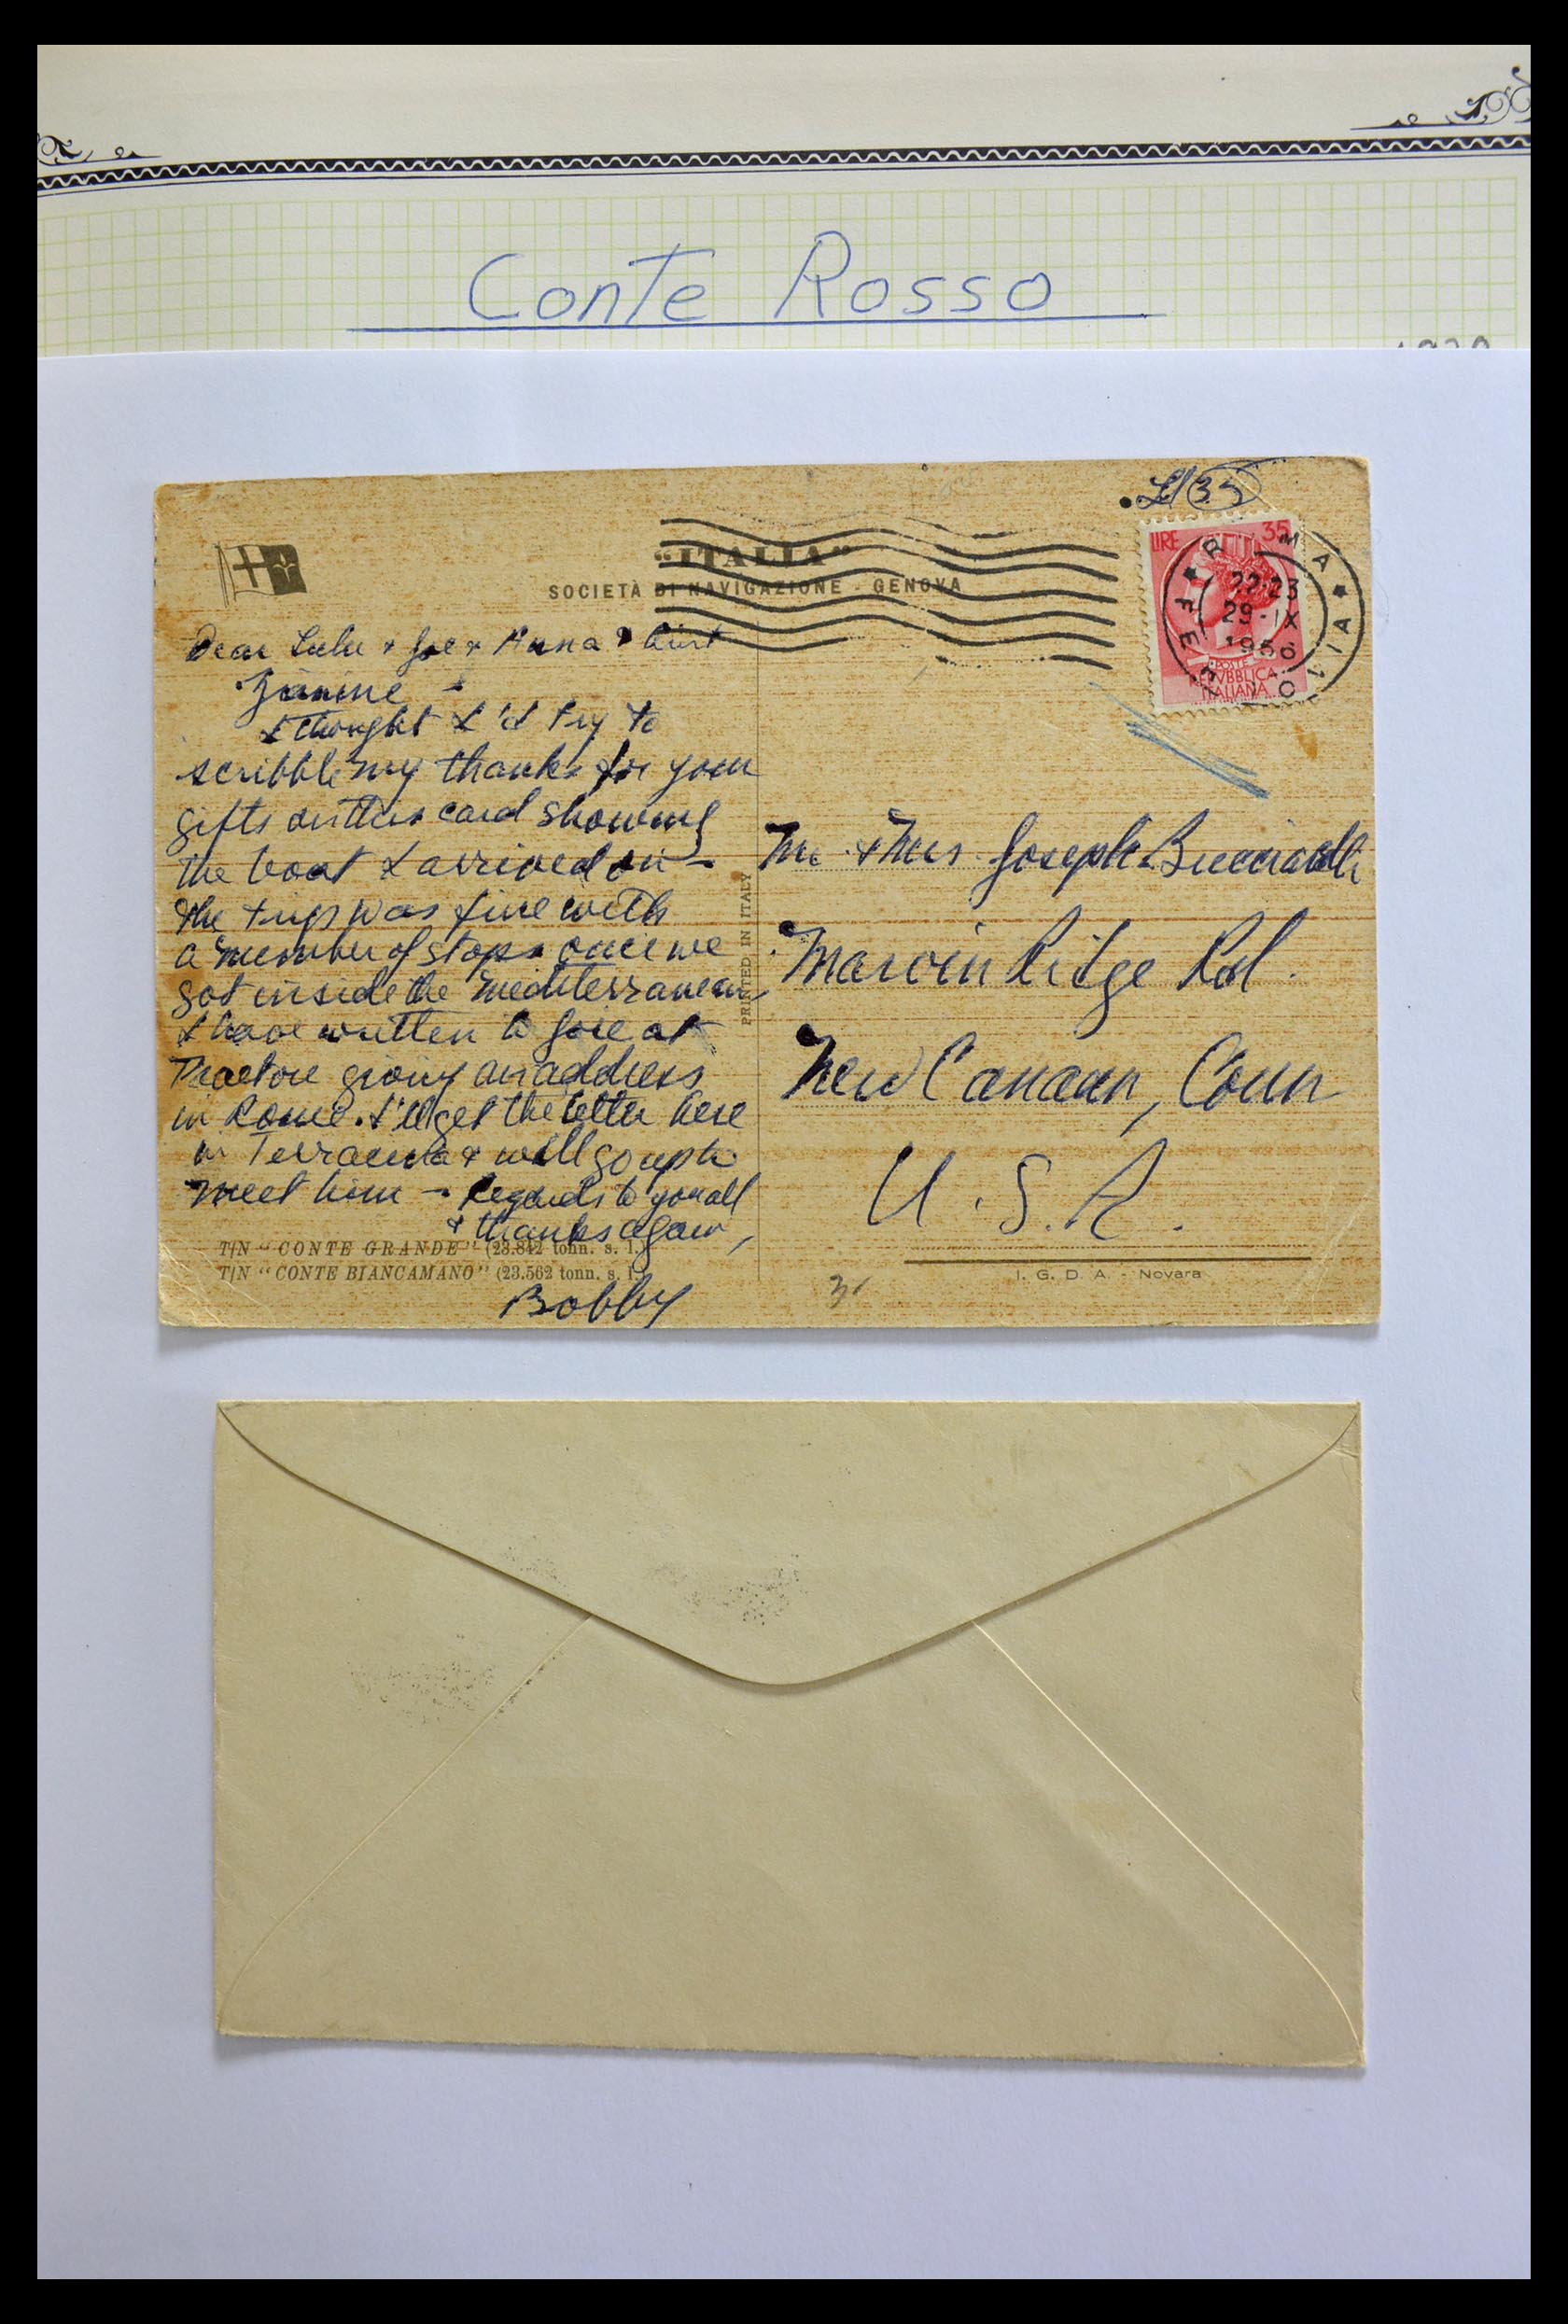 Conte Rosso
"ITALIA"
SOCIETÀ DI NAVIGAZIONE - GENOVA
35
LIRE 35
ROMA
FERROVIA
22-23
29-IX
1956
POSTE
REPVBBLICA
ITALIANA
Dear Lulu & Joe & Anna & Aunt
Giannine -
I thought I'd try to
scribble my thanks for your
gifts on this card showing
the boat I arrived on -
The trip was fine with
a number of stops once we
got inside the Mediterranean,
I have written to Joe at
giving an address
in Rome. I'll get the letter here
in Terracina & will go up to
meet him - Regards to you all
& thanks again,
Bobby
T/N "CONTE GRANDE" (23.842 tonn. s. l.)
T/N "CONTE BIANCAMANO" (23.562 tonn. s. l.)
PRINTED IN ITALY
Mr. & Mrs. Joseph
Marvin Ridge Rd.
New Canaan, Conn
U.S.A.
I. G. D. A. - Novara